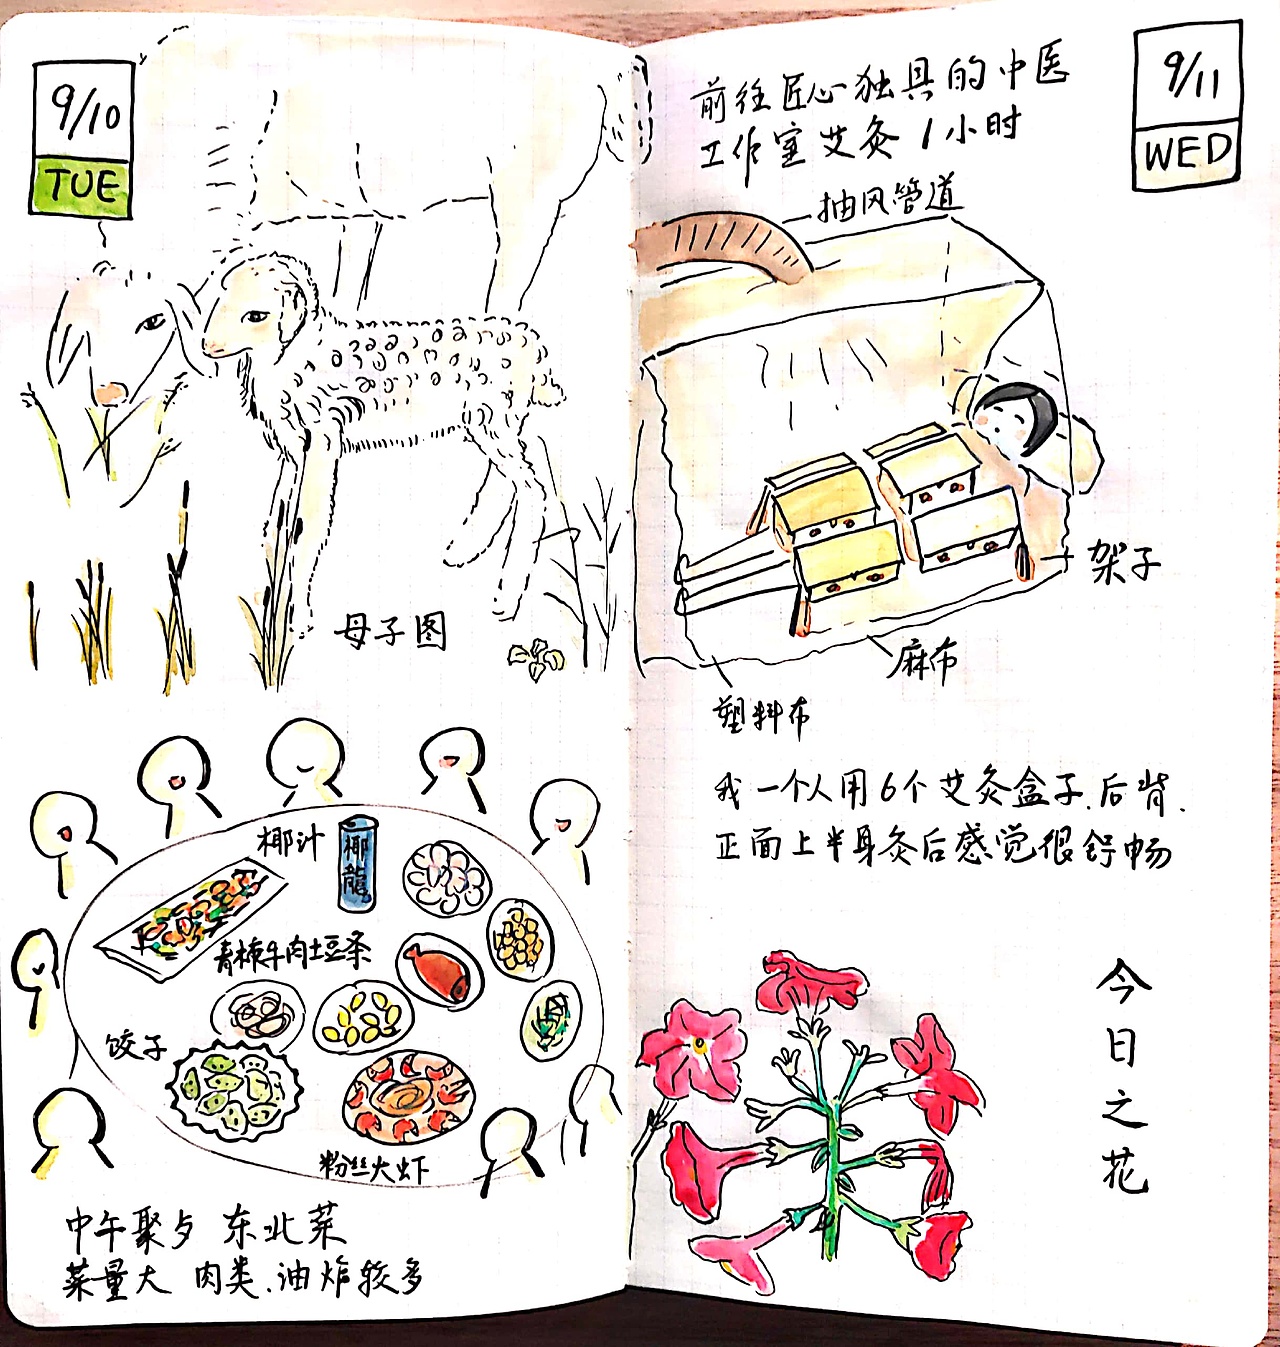 9/10
TUE
母子图
椰汁
椰龍
青椒牛肉土豆条
饺子
粉丝大虾
中午聚歺 东北菜
菜量大 肉类、油炸较多
9/11
WED
前往匠心独具的中医
工作室艾灸1小时
抽风管道
架子
麻布
塑料布
我一个人用6个艾灸盒子、后背、
正面上半身灸后感觉很舒畅
今日之花